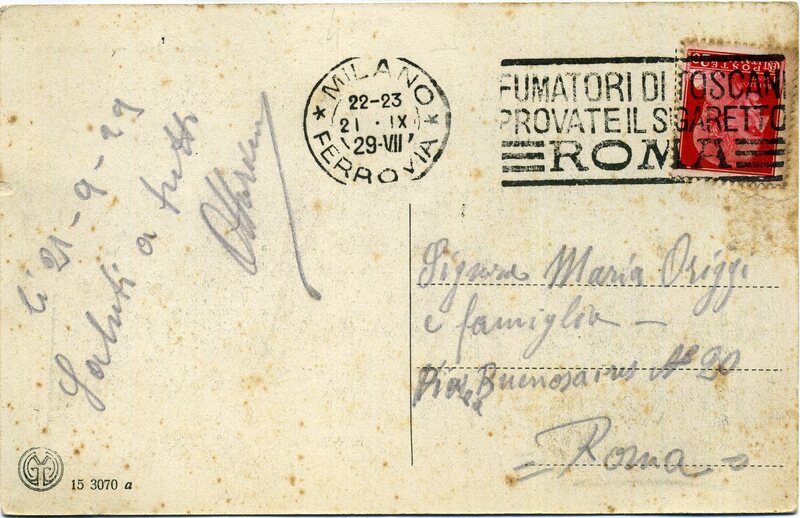 li 21-9-29
Saluti a tutti
MILANO
22-23
21 · IX
29-VII
FERROVIA
FUMATORI DI TOSCANI
PROVATE IL SIGARETTO
ROMA
POSTE
Signora Maria Origgi
e famiglia -
Buenosaires N° 20
= Roma =
15 3070 a